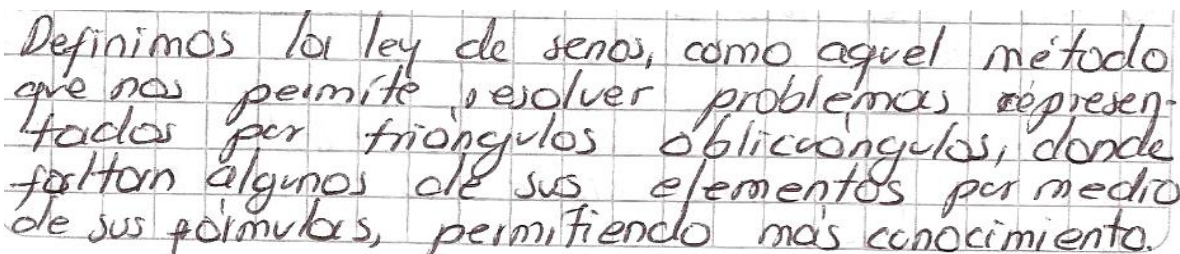 Definimos la ley de senos, como aquel método
que nos permite resolver problemas represen-
tados por triángulos oblicuángulos, donde
faltan algunos de sus elementos por medio
de sus fórmulas, permitiendo más conocimiento.